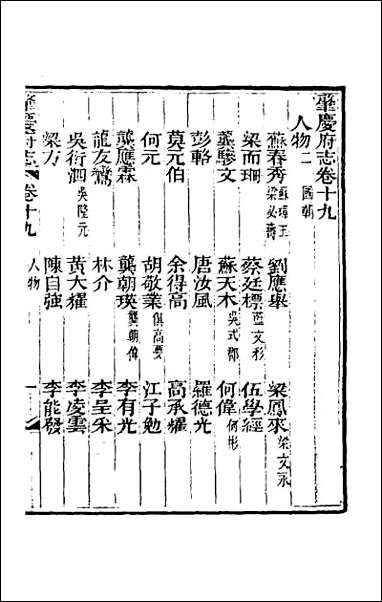 肇慶府志卷十九
人物二 國朝
蘇春秀 蘇璋玉 梁必壽 劉應舉 梁鳳來 梁文永
梁而珊 蔡廷標 藍文彩 伍學經
龔驂文 蘇天木 吳式郡 何偉 何彤
彭輅 唐汝風 羅德光
莫元伯 余得高 高承燿
何元 胡敬業 俱高要 江子勉
龔應霖 龔朝瑛 龔朝偉 李有光
龍友鸞 林介 李呈采
吳衍泗 吳陞元 黃大耀 李凌雲
梁方 陳自強 李能發
肇慶府志 卷十九 人物 一